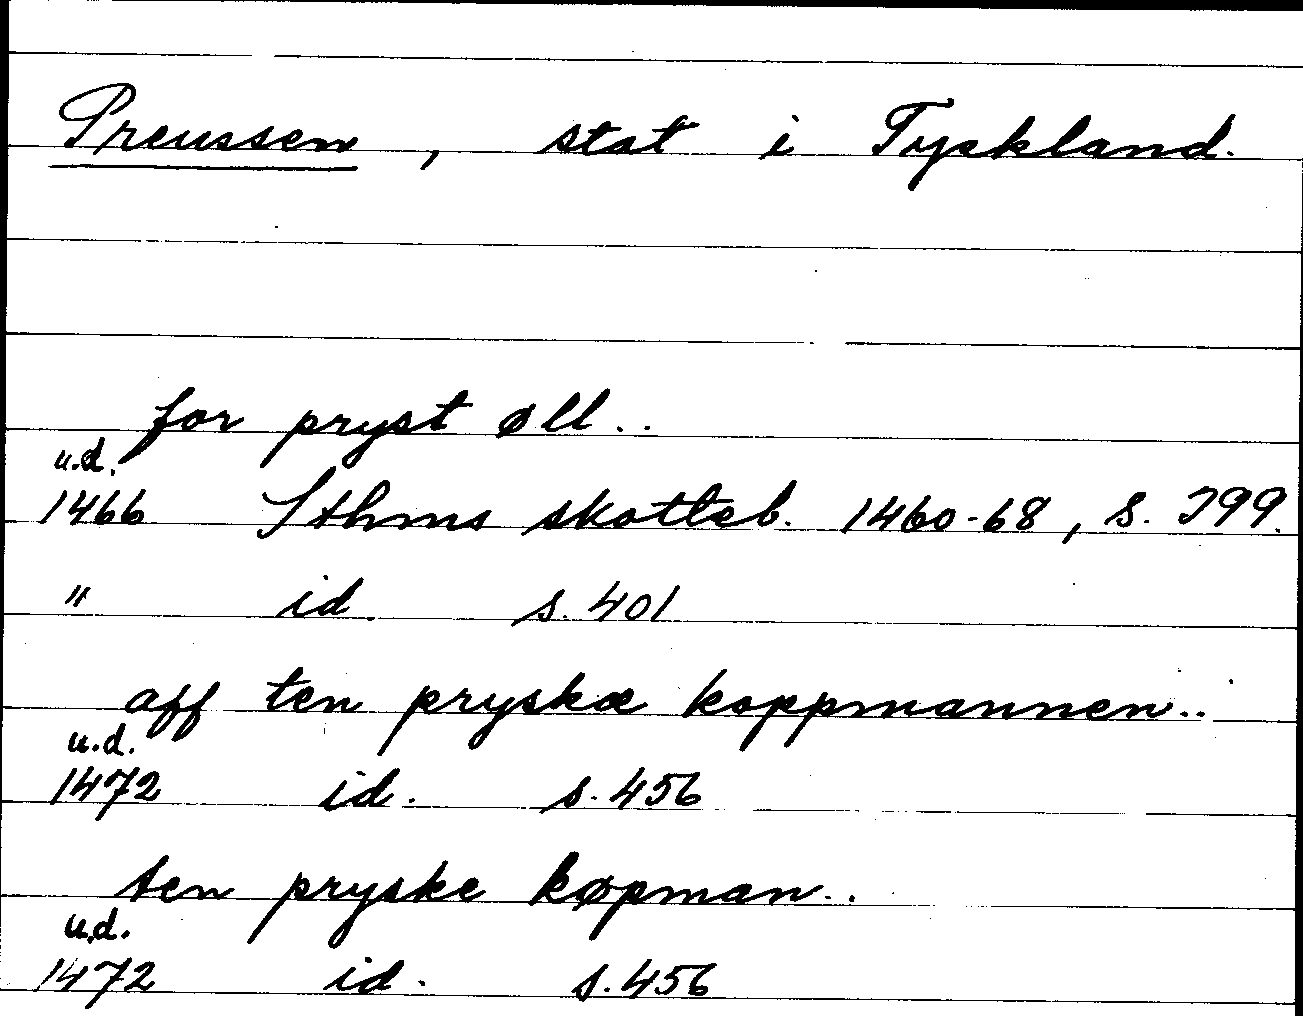 Preussen, stat i Tyskland.
for pryst øll..
u.d.
1466 Sthms skotteb. 1460-68, s. 399.
" id. s. 401
aff ten pryskæ koppmannen..
u.d.
1472 id. s. 456
ten pryske køpman..
u.d.
1472 id. s. 456